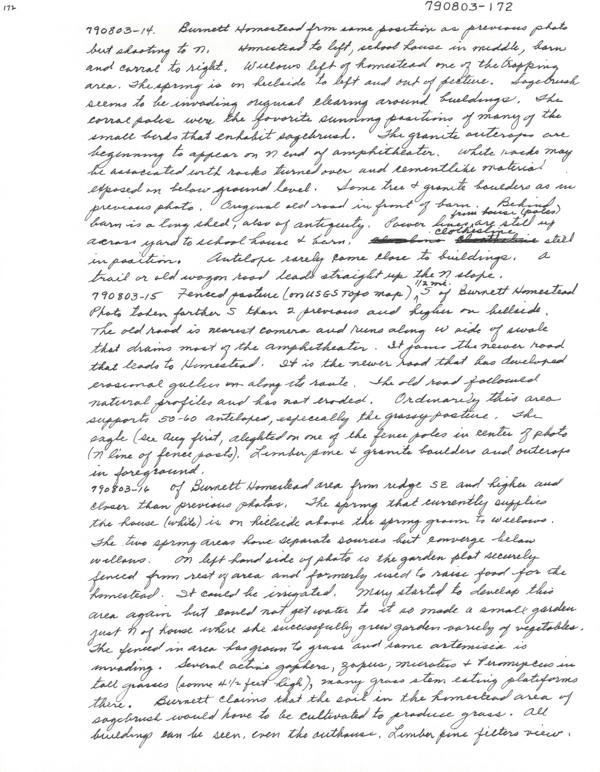 172
790803-172
790803-14. Burnett Homestead frm same position as previous photo
but shooting to N. Homestead to left, school house in middle, barn
and corral to right. Willows left of homestead one of the trapping
area. The spring is on hillside to left and out of picture. Sagebrush
seems to be invading original clearing around buildings. The
corral poles were the favorite sunning positions of many of the
small birds that enhabit sagebrush. The granite outcrops are
beginning to appear on N end of amphitheater. White rocks may
be associated with rocks turned over and cementlike material
exposed on below ground level. Some tree & granite boulders as in
previous photo. Original old road in front of barn. Behind
barn is a long shed, also of antiquity. Power lines from house (poles) are still up
across yard to school house & barn. clothesline still
in position. Antelope rarely come close to buildings. A
trail or old wagon road leads straight up the N slope.
790803-15 Fenced pasture (on USGS Topo map) 1/2 mi. S of Burnett Homestead
Photo taken farther S than 2 previous and higher on hillside.
The old road is nearest camera and runs along W side of swale
that drains most of the amphitheater. It joins the newer road
that leads to Homestead. It is the newer road that has developed
erosional gullies on along its route. The old road followed
natural profiles and has not eroded. Ordinarily this area
supports 50-60 antelopes, especially the grassy pasture. The
eagle (see Aug first, alighted on one of the fence poles in center of photo
(N line of fence posts). Limber pine & granite boulders and outcrops
in foreground.
790803-16 of Burnett Homestead area from ridge SE and higher and
closer than previous photos. The spring that currently supplies
the house (white) is on hillside above the spring grown to willows.
The two spring areas have separate sources but converge below
willows. On left hand side of photo is the garden plot securely
fenced from rest of area and formerly used to raise food for the
homestead. It could be irrigated. Mary started to develop this
area again but could not get water to it so made a small garden
just N of house where she successfully grew garden variely of vegetables.
The fenced in area has grown to grass and some artemisia is
invading. Several active gophers, zapus, microtus & Peromyscus in
tall grasses (some 4 1/2 feet high), many grass stem eating platforms
there. Burnett claims that the soil in the homestead area of
sagebrush would have to be cultivated to produce grass. All
buildings can be seen, even the outhouse. Limber pine filters view.